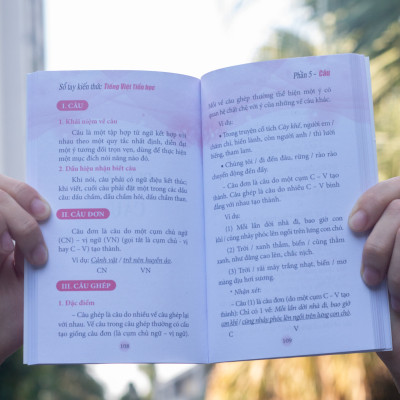 Sổ tay kiến thức Tiếng Việt tiểu học
I. CÂU
1. Khái niệm về câu
Câu là một tập hợp từ ngữ kết hợp với
nhau theo một quy tắc nhất định, diễn đạt
một ý tương đối trọn vẹn, dùng để thực hiện
một mục đích nói năng nào đó.
2. Dấu hiệu nhận biết câu
Khi nói, câu phải có ngữ điệu kết thúc;
khi viết, cuối câu phải đặt một trong các dấu
câu: dấu chấm, dấu chấm hỏi, dấu chấm than.
II. CÂU ĐƠN
Câu đơn là câu do một cụm chủ ngữ
(CN) – vị ngữ (VN) (gọi tắt là cụm chủ - vị
hay C – V) tạo thành.
Ví dụ: Cánh vật / trở nên huyền ảo.
CN VN
III. CÂU GHÉP
1. Đặc điểm
– Câu ghép là câu do nhiều vế câu ghép lại
với nhau. Vế câu trong câu ghép thường có cấu
tạo giống câu đơn (là cụm chủ ngữ – vị ngữ).
108
Phần 5 – Câu
Mỗi vế câu ghép thường thể hiện một ý có
quan hệ chặt chẽ với ý của những vế câu khác.
Ví dụ:
• Trong truyện cổ tích Cây khế, người em /
chăm chỉ, hiền lành, còn người anh / thì lười
biếng, tham lam.
• Chúng tôi / đi đến đâu, rừng / rào rào
chuyển động đến đấy.
– Câu đơn là câu do một cụm C – V tạo
thành. Câu ghép là câu do nhiều C – V bình
đẳng với nhau tạo thành.
Ví dụ:
(1) Mỗi lần dời nhà đi, bao giờ con
khỉ / cũng nhảy phóc lên ngồi trên lưng con chó.
(2) Trời / xanh thẳm, biển / cũng thẳm
xanh, như dâng cao lên, chắc nịch.
(3) Trời / rải mây trắng nhạt, biển / mơ
màng dịu hơi sương.
* Nhận xét:
– Câu (1) là câu đơn (do một cụm C – V tạo
thành). Chỉ có 1 vế: Mỗi lần dời nhà đi, bao giờ
con khỉ / cũng nhảy phóc lên ngồi trên lưng con chó.
C V
109